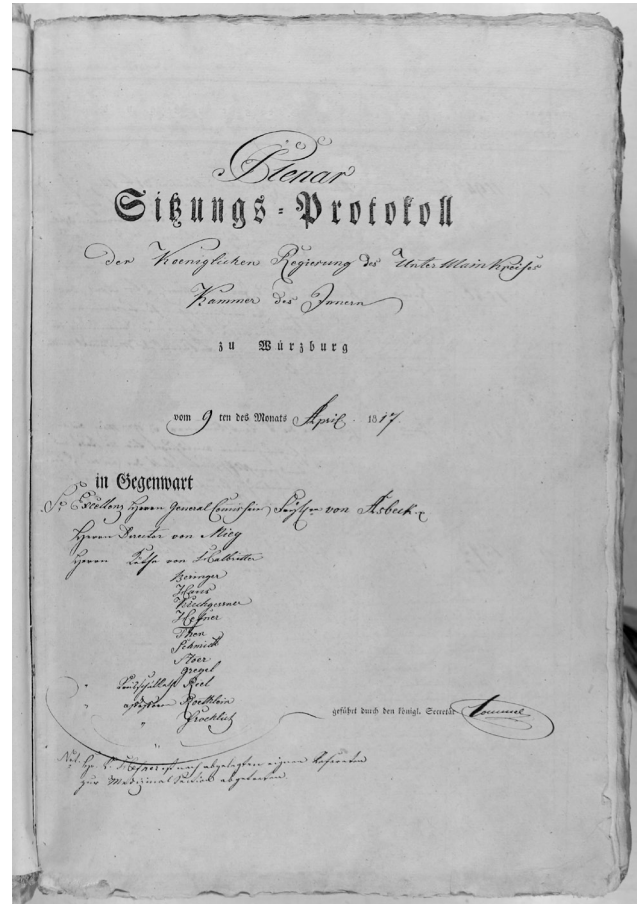 Plenar
Sitzungs-Protokoll
der Koeniglichen Regierung des Unter Mainkreises
Kammer des Innern
zu Würzburg
vom 9 ten des Monats April 1817.
in Gegenwart
Sr Excellenz Herrn General Comissair von Asbeck
Herrn Director von Mieg
Herrn Räthe von Halbritter
Beringer
Haus
Kirchgessner
Hefner
Then
Schmidt
Stoer
Gregel
" Kreisschulrath Riel
" Assessoren Roethlein
" Froelich
geführt durch den königl. Secretär
nach abgelegten eignen Referaten
zur Medizinal abgetreten.